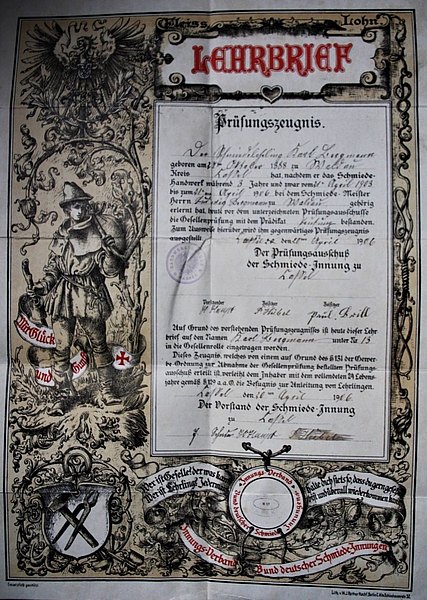 Fleiss Lohn
LEHRBRIEF
Prüfungszeugnis.
Der Schmiedelehrling Karl Bergmann
geboren am Oktober 1888 zu Waldau
Kreis Cassel hat, nachdem er das Schmiede-
Handwerk während 3 Jahre und zwar vom April 1903
bis zum April 1906 bei dem Schmiede-Meister
Herrn Bergmann zu Waldau gehörig
erlernt hat, heute vor dem unterzeichneten Prüfungsausschusse
die Gesellenprüfung mit dem Prädikat bestanden.
Zum Ausweise hierüber wird ihm gegenwärtiges Prüfungszeugnis
ausgestellt. Cassel den April 1906
Der Prüfungsausschuß
der Schmiede-Innung zu
Cassel
Vorsitzender Beisitzer Beisitzer
Paul Brill
Auf Grund des vorstehenden Prüfungszeugnisses ist heute dieser Lehr-
brief auf den Namen Karl Bergmann unter No 13
in die Gesellenrolle eingetragen worden.
Dieses Zeugnis, welches von einem auf Grund des § 131 der Gewer-
be Ordnung zur Abnahme der Gesellenprüfung bestellten Prüfungs-
ausschuß erteilt ist verleiht dem Inhaber mit dem vollendeten 24 Lebens-
jahre gemäß § 129 a.a.O. die Befugniss zur Anleitung von Lehrlingen.
Cassel, den April 1906
Der Vorstand der Schmiede-Innung
zu Cassel
Viel Glück
und
Gut
Der ist Geselle! der was kann
Wer ist Lehrling? Jedermann
Halte dich stets so, dass du gern gesehen
bist und überall wiederkommen
Innungs-Verband
Bund deutscher Schmiede-Innungen
Innungs-Verband
Bund deutscher Schmiede-Innungen
Gesetzlich geschützt